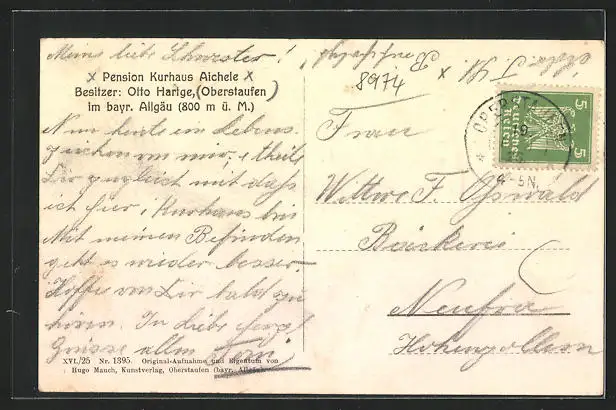 Meine liebe Schwester!
x Pension Kurhaus Aichele x
Besitzer: Otto Hartge, (Oberstaufen)
im bayr. Allgäu (800 m ü. M.)
Nun heute ein Lebens-
zeichen von mir, & theile
Dir zugleich mit daß
ich hier, Kurhaus bin
Mit meinen Befinden
geht es wieder besser.
Hoffe von Dir bald zu
hören. In Liebe
Grüsse allen
XVI./25 Nr. 1395. Original-Aufnahme und Eigentum von
Hugo Mauch, Kunstverlag, Oberstaufen (bayr. Allgäu).
8974
Frau
Wittwe F. Oswald
Bäckerei
Neufra
Hohenzollern
5 5
Deutsches Reich
OBERSTAUFEN
4-5N.